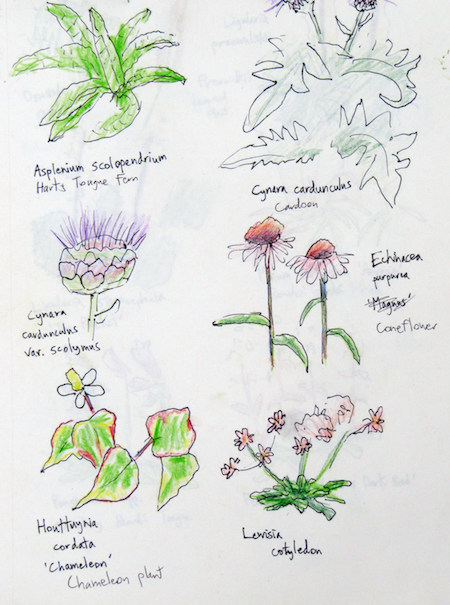 Asplenium scolopendrium
Harts Tongue Fern
Cynara cardunculus
Cardoon
Cynara
cardunculus
var. scolymus
Echinacea
purpurea
'Magnus'
Coneflower
Houttuyna
cordata
'Chameleon'
Chameleon plant
Lewisia
cotyledon